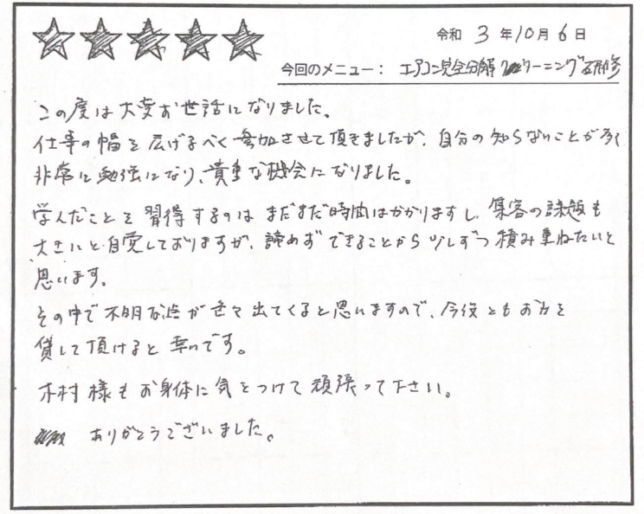 令和 3 年 10 月 6 日
今回のメニュー： エアコン完全分解クリーニング研修
この度は大変お世話になりました。
仕事の幅を広げるべく参加させて頂きましたが、自分の知らないことが多く
非常に勉強になり、貴重な機会になりました。
学んだことを習得するのはまだまだ時間はかかりますし、集客の課題も
大きいと自覚しておりますが、諦めずできることから少しずつ積み重ねたいと
思います。
その中で不明な点が色々出てくると思いますので、今後ともお力を
貸して頂けると幸いです。
木村様もお身体に気をつけて頑張って下さい。
ありがとうございました。